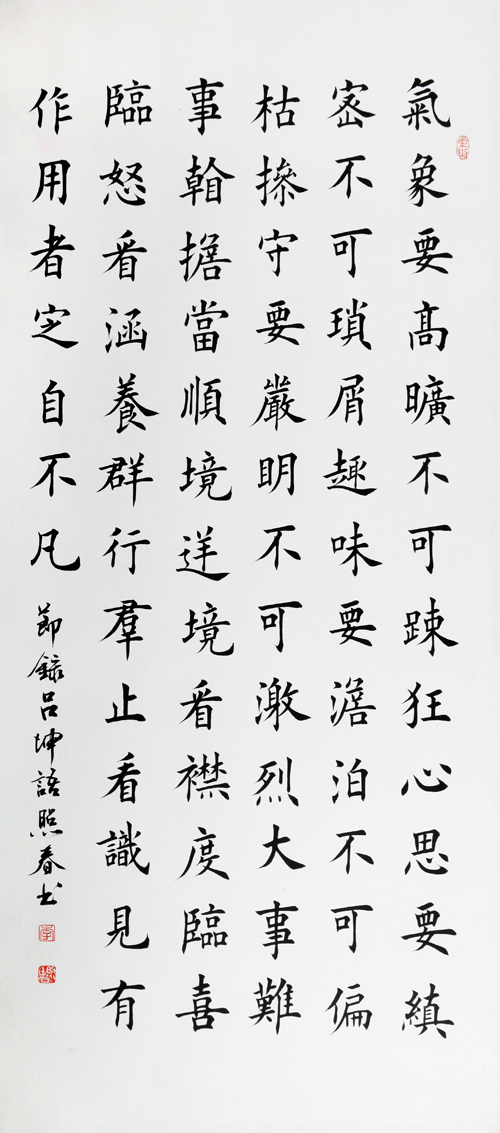 氣象要髙曠不可踈狂心思要縝
宻不可瑣屑趣味要澹泊不可偏
枯摻守要嚴明不可激烈大事難
事看擔當順境逆境看襟度臨喜
臨怒看涵養群行羣止看識見有
作用者㝎自不凡
節錄呂坤語照春书